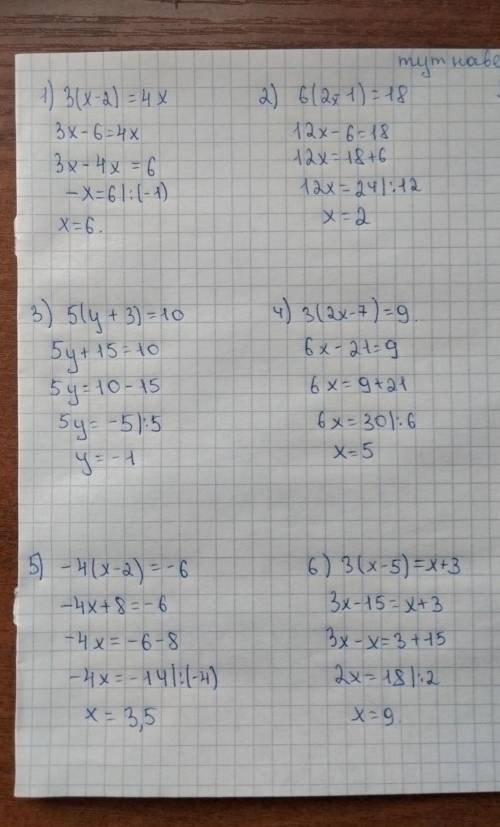 тут наве
1) 3(x-2)=4x
3x-6=4x
3x-4x=6
-x=6|:(-1)
x=6.
2) 6(2x-1)=18
12x-6=18
12x=18+6
12x=24|:12
x=2
3) 5(y+3)=10
5y+15=10
5y=10-15
5y=-5|:5
y=-1
4) 3(2x-7)=9.
6x-21=9
6x=9+21
6x=30|:6
x=5
5) -4(x-2)=-6
-4x+8=-6
-4x=-6-8
-4x=-14|:(-4)
x=3,5
6) 3(x-5)=x+3
3x-15=x+3
3x-x=3+15
2x=18|:2
x=9